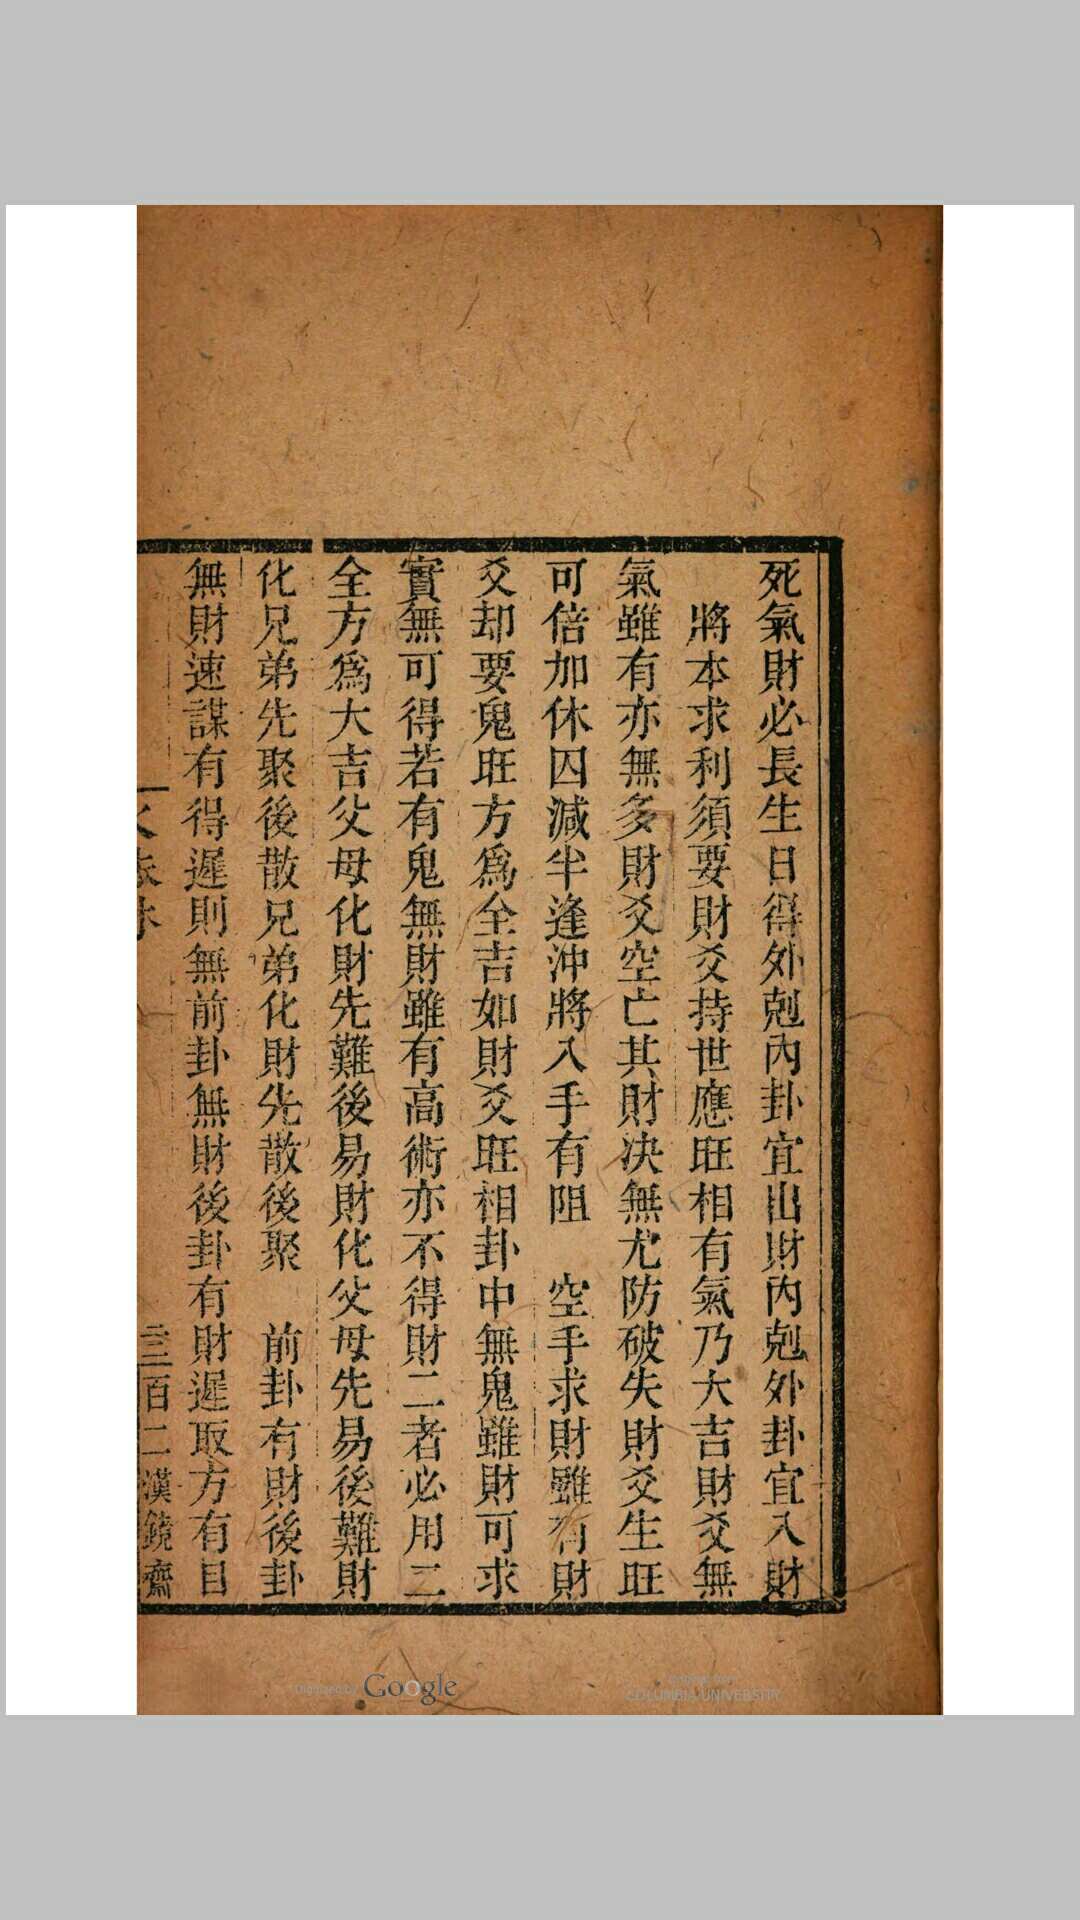 死氣財必長生日得外剋內卦宜出財內剋外卦宜入財
將本求利須要財爻持世應旺相有氣乃大吉財爻無
氣雖有亦無多財爻空亡其財决無尤防破失財爻生旺
可倍加休囚減半逢沖將入手有阻　空手求財雖有財
爻却要鬼旺方爲全吉如財爻旺相卦中無鬼雖財可求
實無可得若有鬼無財雖有高術亦不得財二者必用二
全方爲大吉父母化財先難後易財化父母先易後難財
化兄弟先聚後散兄弟化財先散後聚　前卦有財後卦
無財速謀有得遲則無前卦無財後卦有財遲取方有目
百二 漢鏡齋
Digitized by Google
COLUMBIA UNIVERSITY